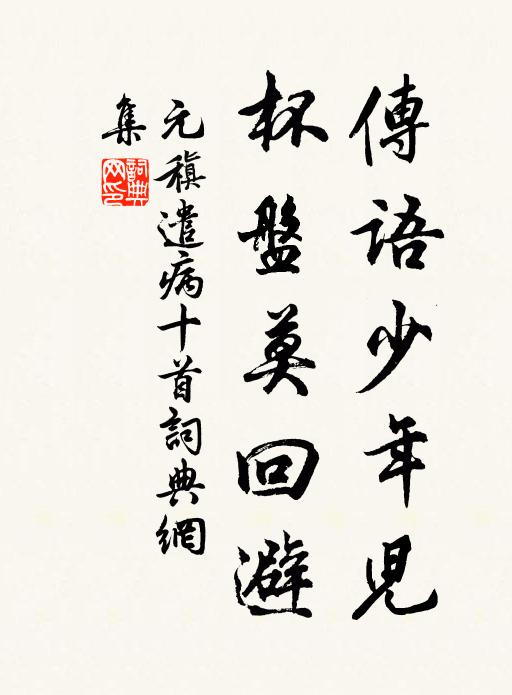 傳語少年兒
杯盤莫回避
元稹遣病十首詞典網
集
詞典
网印